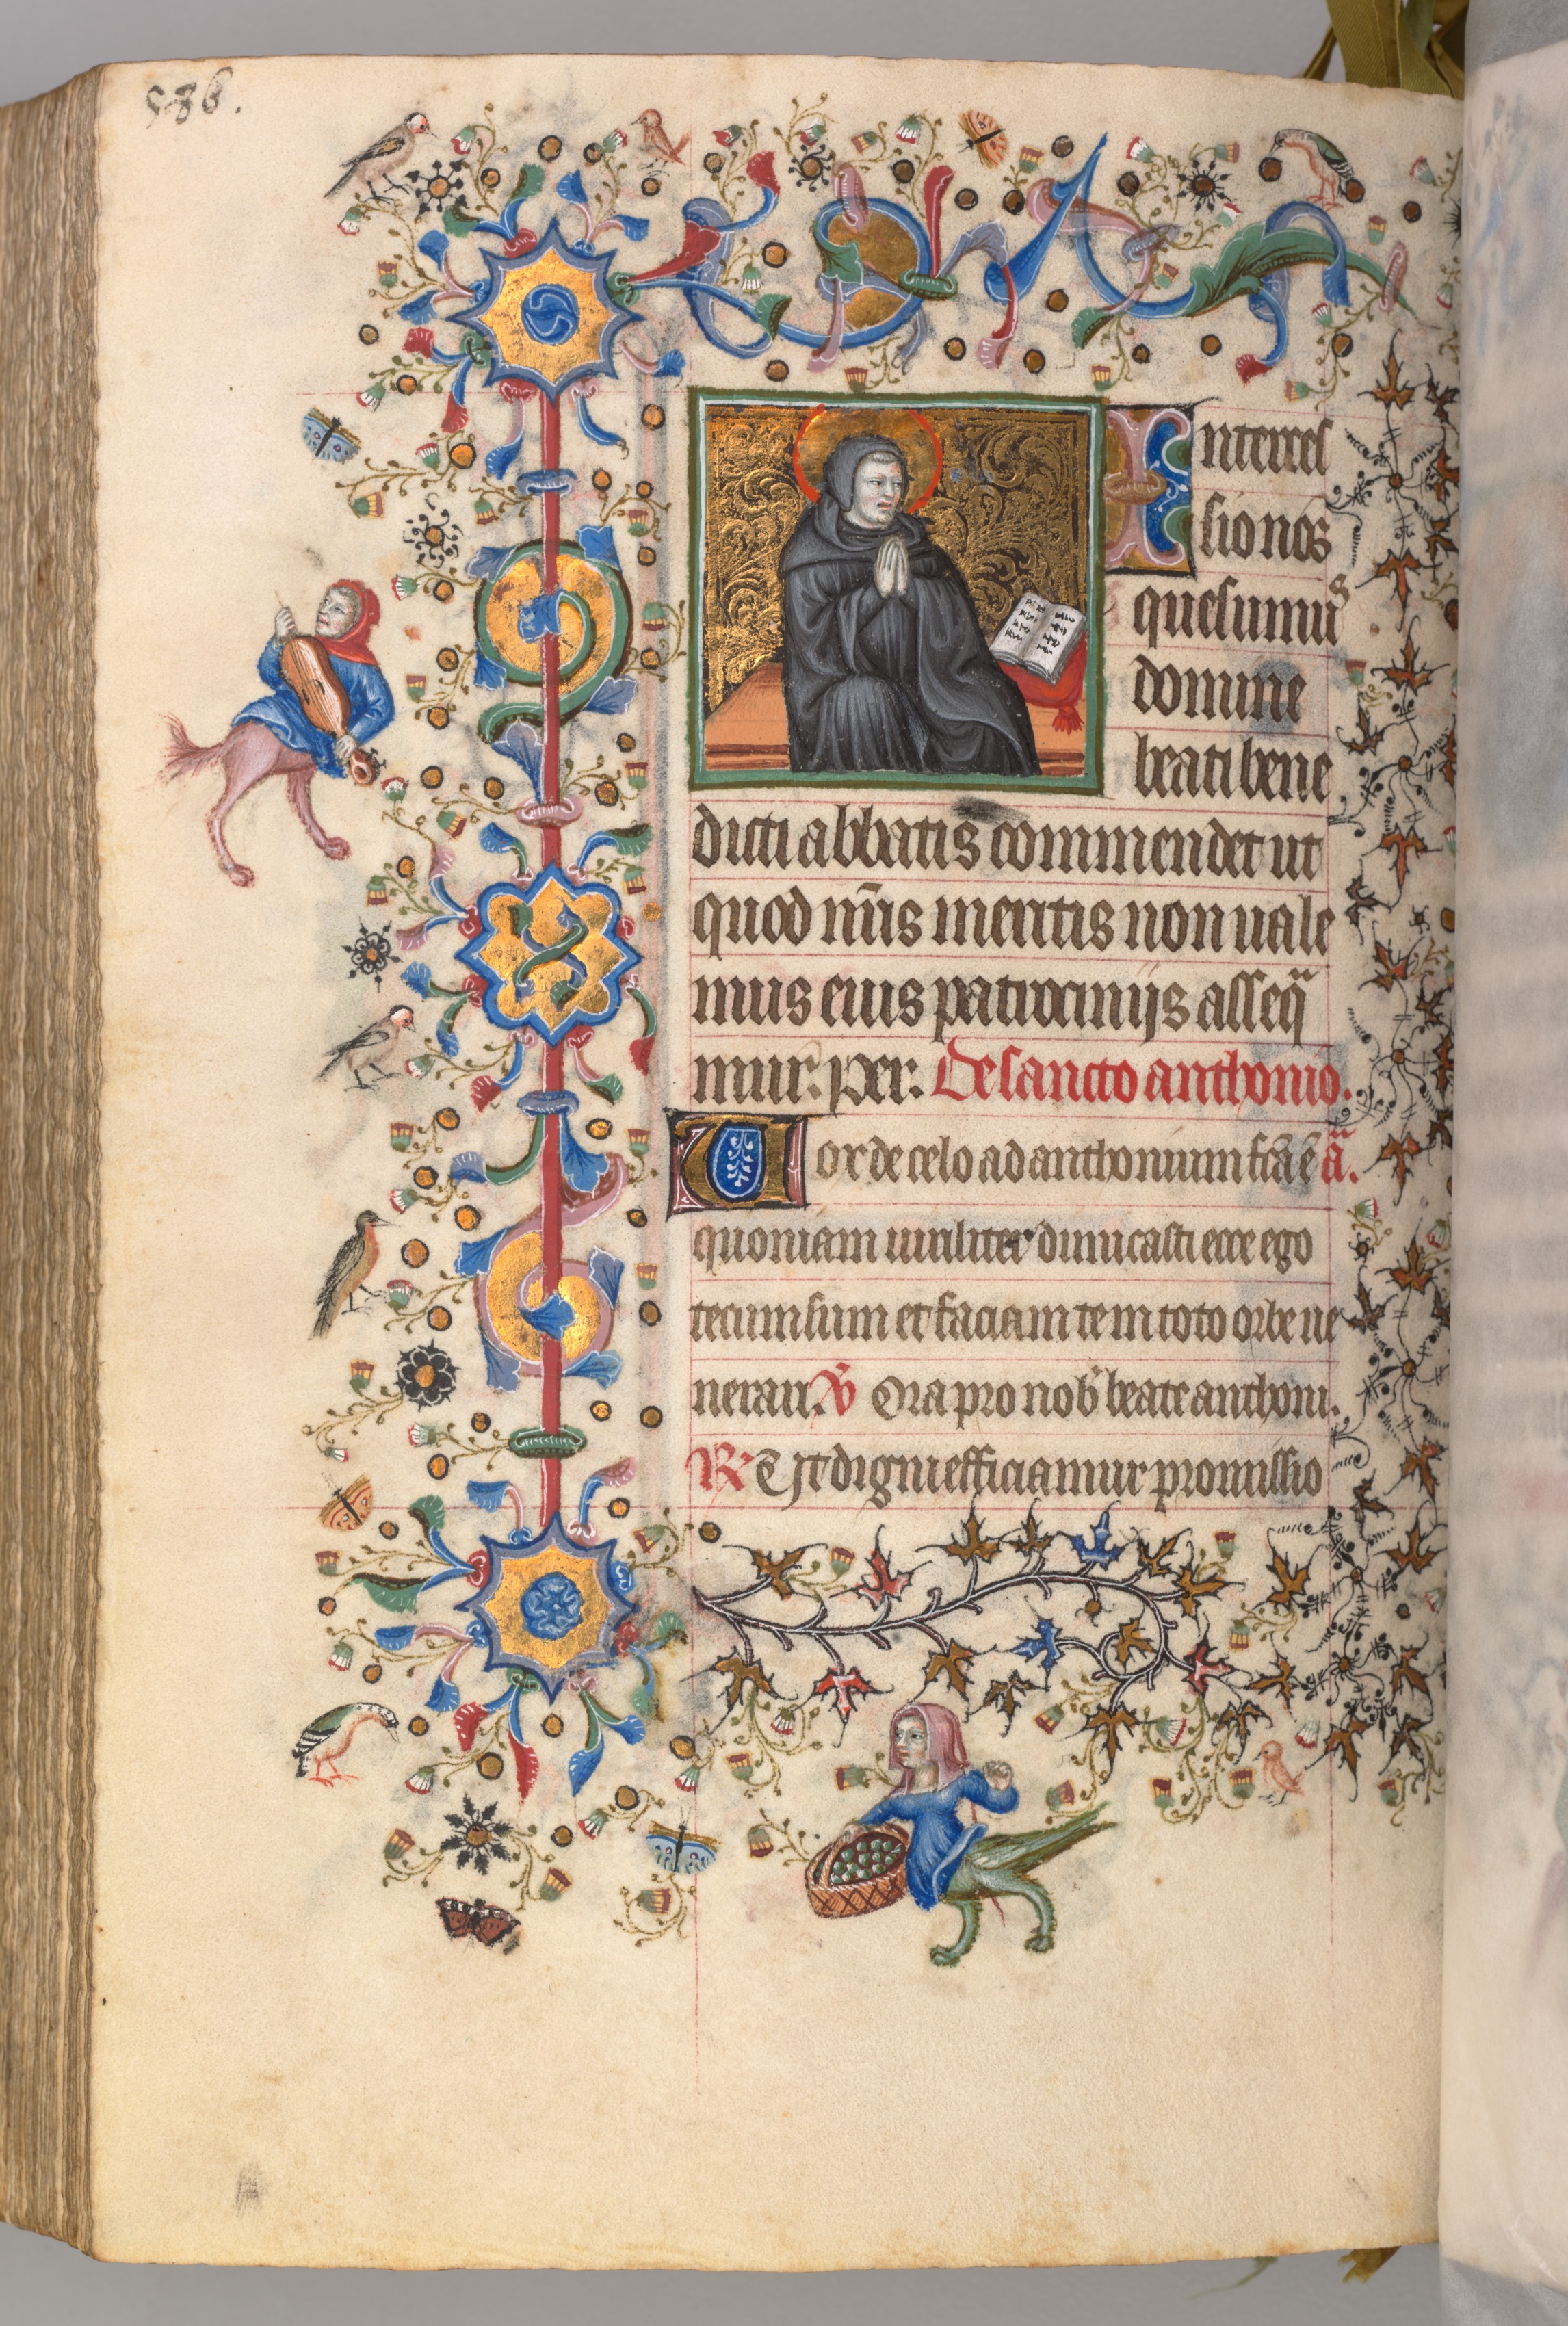 586.
Interces
sio nos
quesumus
domine
beati bene
dicti abbatis commendet ut
quod nr̄is meritis non uale
mus eius patrocinijs asseq̄
mur. per. De sancto anthonio.
Uox de celo ad anthonium fc̄a ē ā.
quoniam uiriliter dimicasti ecce ego
tecum sum et faciam te in toto orbe ue
nerari. V̄ Ora pro nob̄ beate anthoni.
R̄ Ut digni efficiamur promissio